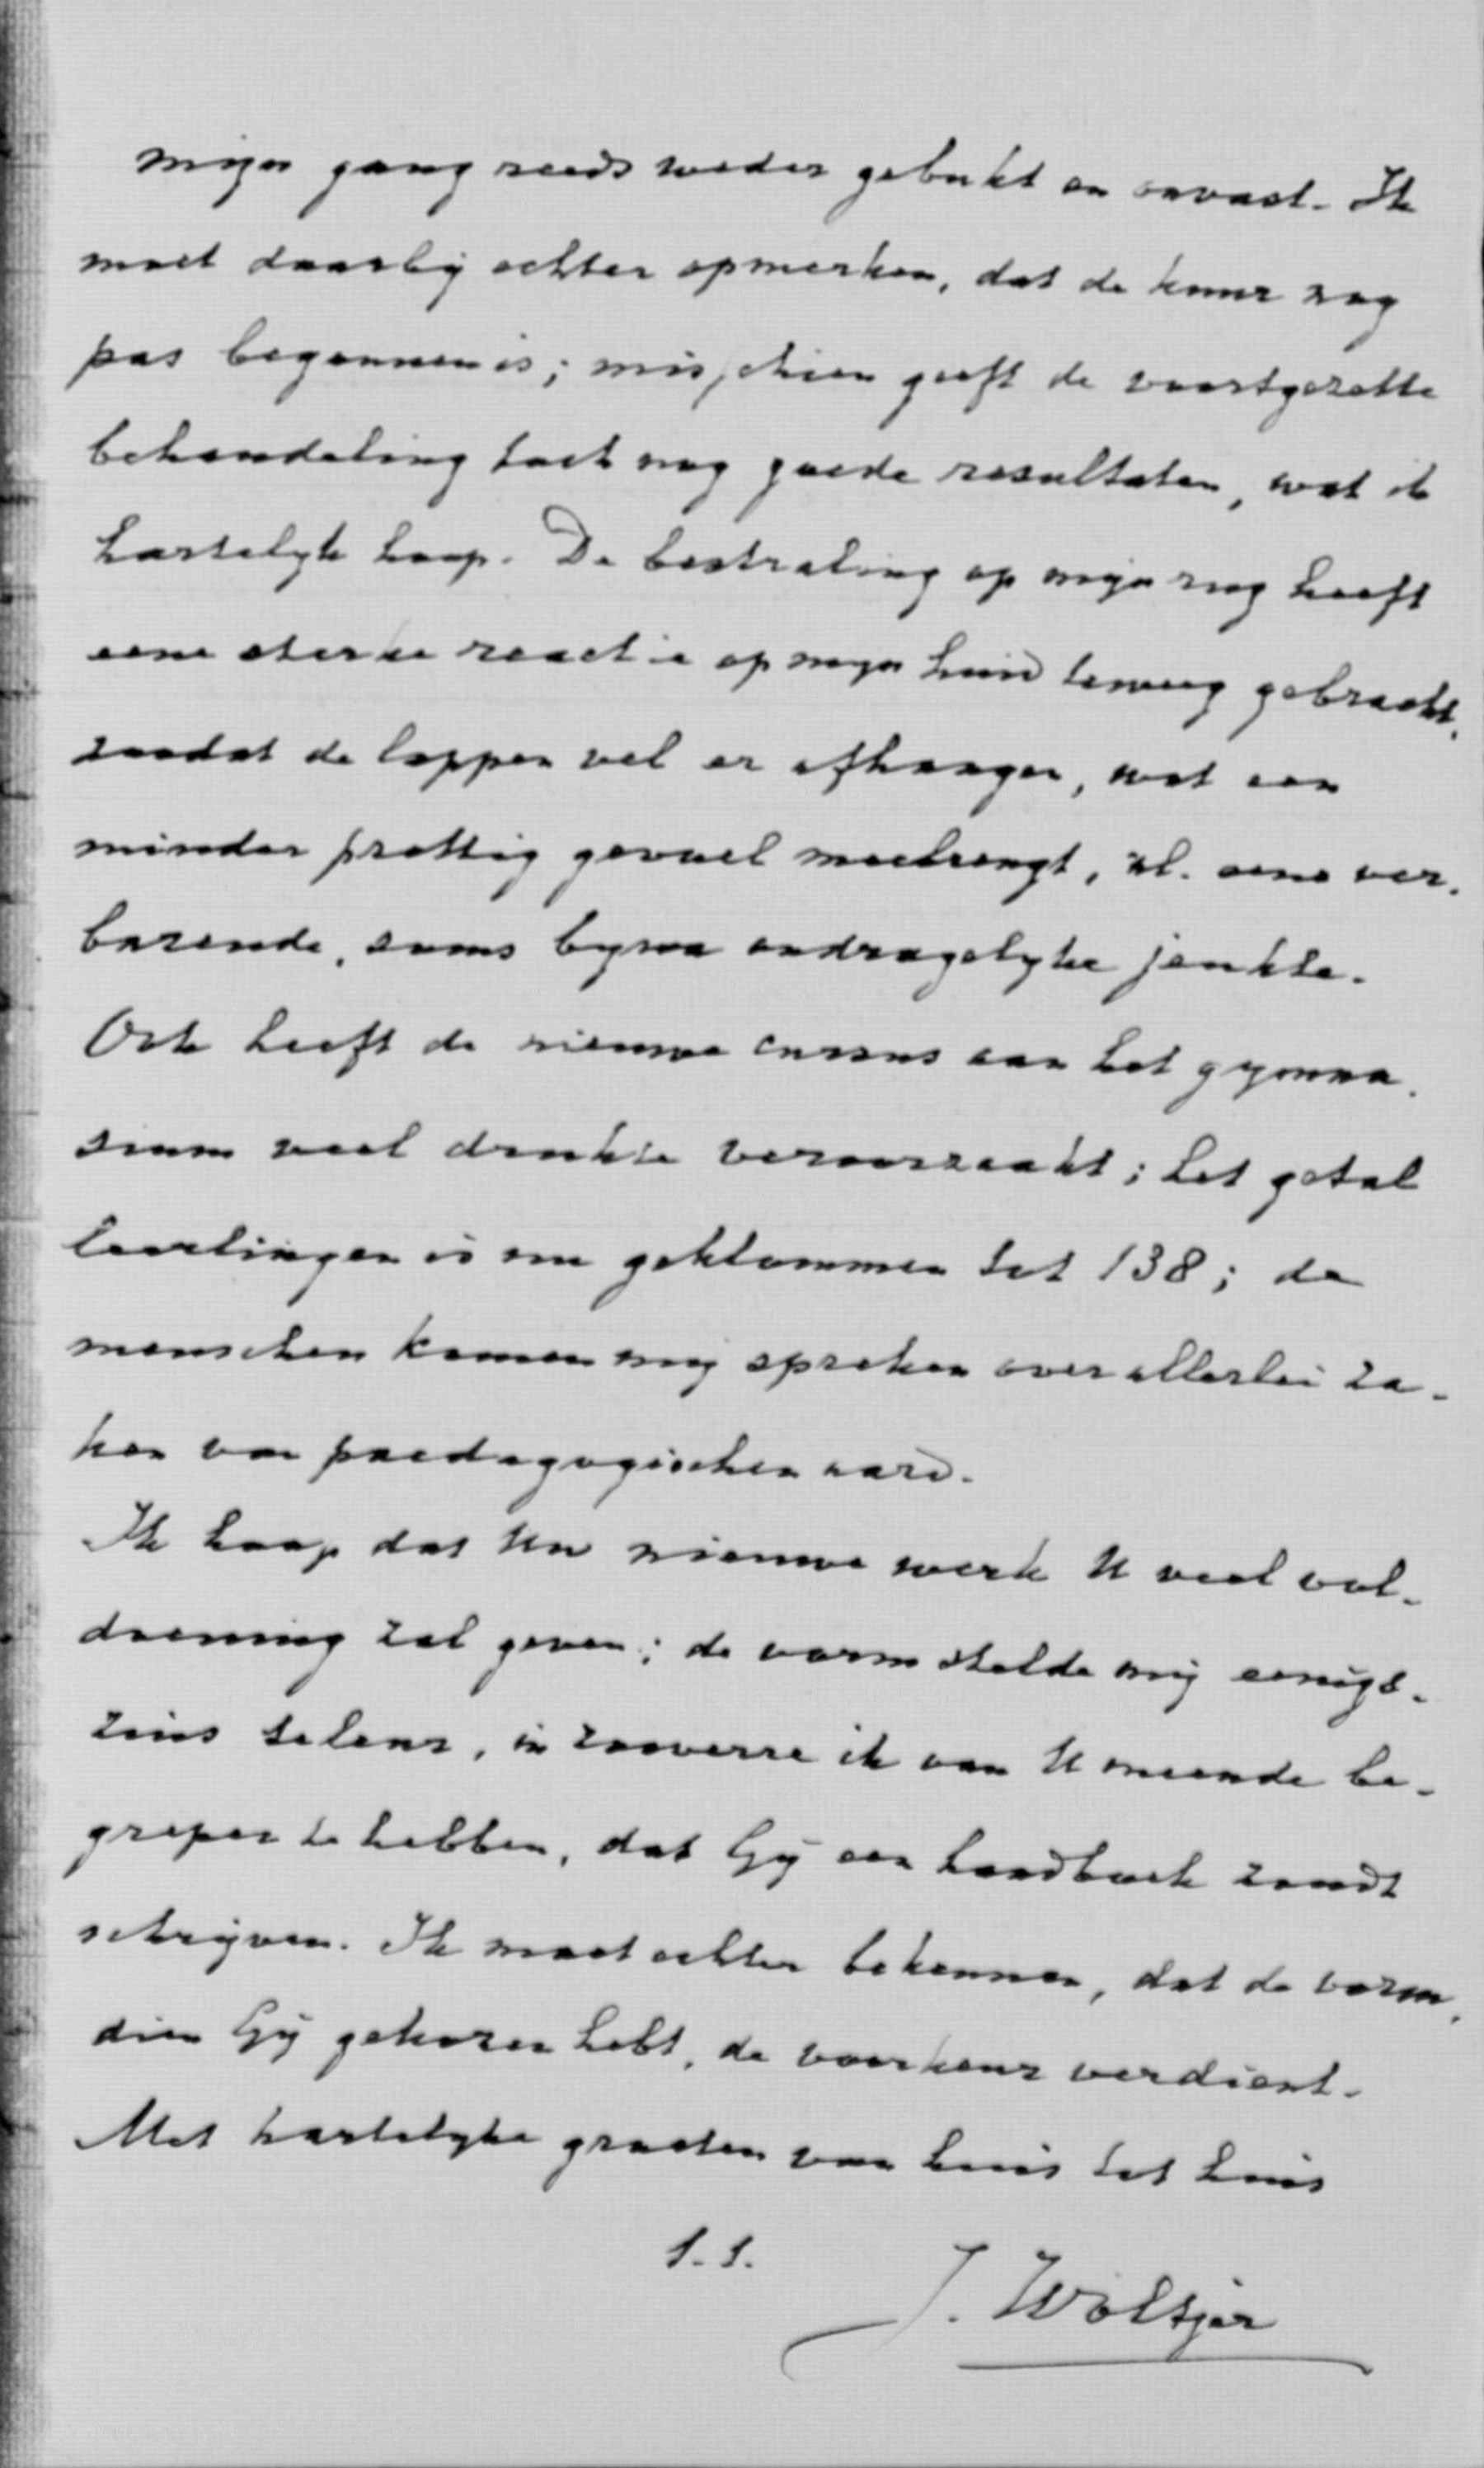 mijn gang reeds weder gebukt en onvast. Ik
moet daarbij echter opmerken, dat de kuur nog
pas begonnen is; misschien geeft de voortgezette
behandeling toch nog goede resultaten, wat ik
hartelijk hoop. De bestraling op mijn rug heeft
eene sterke reactie op mijn huid teweeg gebracht,
zoodat de lappen vel er afhangen, wat een
minder prettig gevoel meebrengt, nl. eene ver-
bazende, soms bijna ondragelijke jeukte.
Ook heeft de nieuwe cursus aan het gymna-
sium veel drukte veroorzaakt; het getal
leerlingen is nu geklommen tot 138; de
menschen komen mij spreken over allerlei za-
ken van paedagogischen aard.
Ik hoop dat Uw nieuwe werk U veel vol-
doening zal geven; de vorm stelde mij eenigs-
zins teleur, in zooverre ik van U meende be-
grepen te hebben, dat Gij een handboek zoudt
schrijven. Ik moet echter bekennen, dat de vorm,
dien Gij gekozen hebt, de voorkeur verdient.
Met hartelijke groeten van huis tot huis
t.t.
J. Woltjer